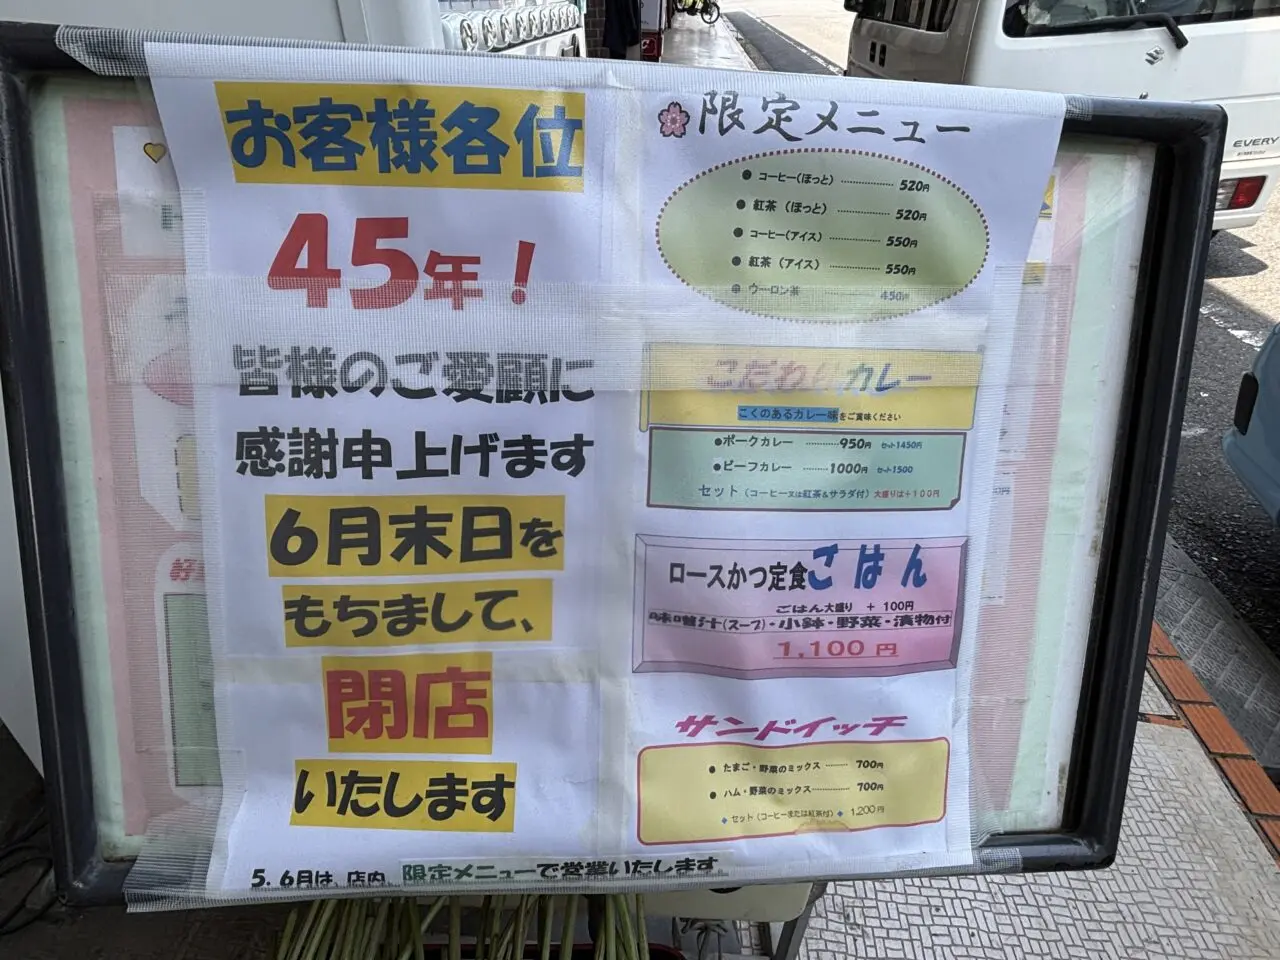 お客様各位
45年！
皆様のご愛顧に
感謝申上げます
6月末日を
もちまして、
閉店
いたします
5．6月は、店内、限定メニューで営業いたします。
限定メニュー
●コーヒー(ほっと) ………… 520円
●紅茶（ほっと） ………… 520円
●コーヒー(アイス) ………… 550円
●紅茶（アイス） ………… 550円
ウーロン茶 450円
こだわりカレー
こくのあるカレー味をご賞味ください
●ポークカレー ………950円 セット1450円
●ビーフカレー ………1000円 セット1500
セット（コーヒー又は紅茶&サラダ付）大盛りは+100円
ロースかつ定食ごはん
ごはん大盛り + 100円
味噌汁(スープ)・小鉢・野菜・漬物付
1,100 円
サンドイッチ
●たまご・野菜のミックス ……… 700円
●ハム・野菜のミックス………… 700円
◆セット（コーヒーまたは紅茶付）◆ 1,200 円
EVERY